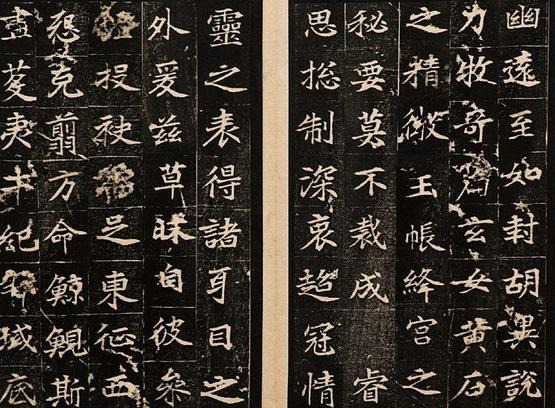 幽遠至如封胡異說
力牧奇篇玄女黃石
之精微玉帳絳宮之
秘要莫不裁成睿
思揔制深衷超冠情
靈之表得諸耳目之
外爰茲草昧自彼叅
投袂足東征西
怨克翦方命鯨鯢斯
盡芟夷紀域底